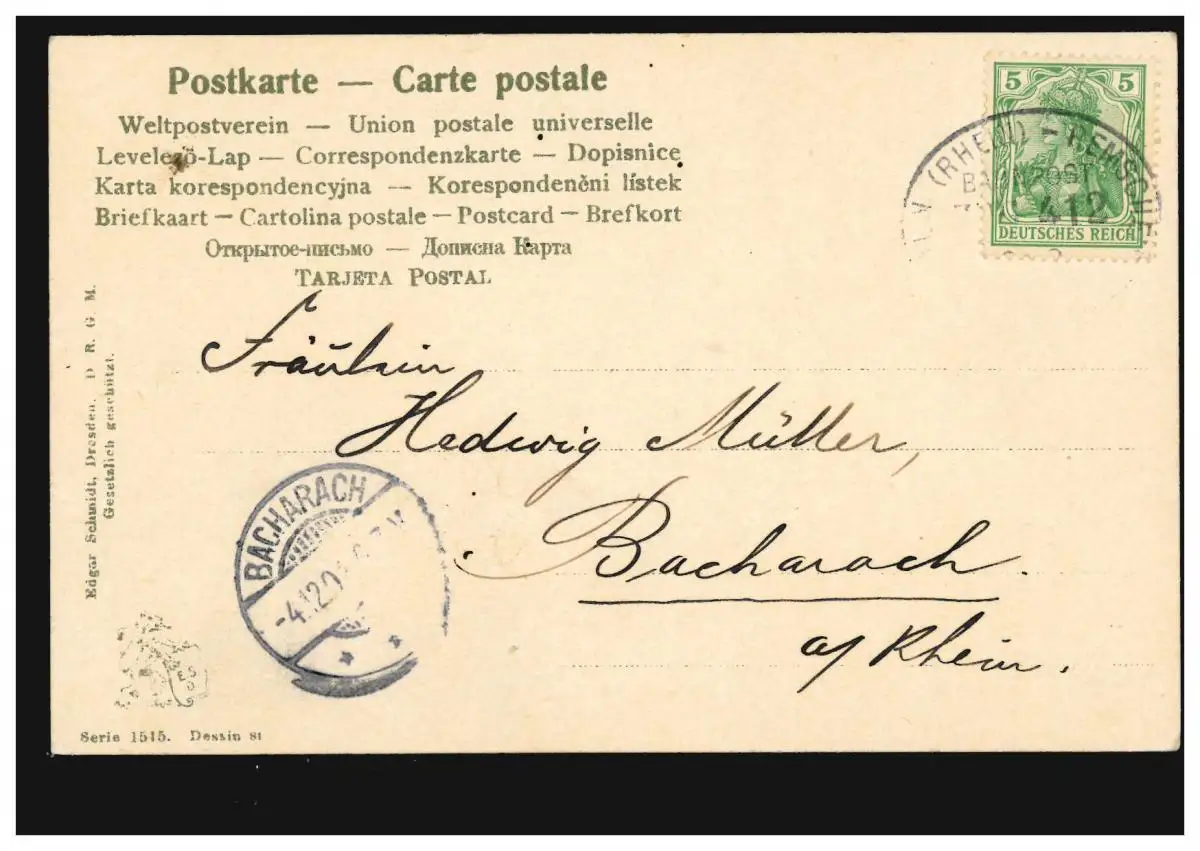 Postkarte — Carte postale
Weltpostverein — Union postale universelle
Levelező-Lap — Correspondenzkarte — Dopisnice
Karta korespondencyjna — Korespondenční lístek
Briefkaart — Cartolina postale — Postcard — Brefkort
Открытое-письмо — Дописна Карта
TARJETA POSTAL
5 5
(RHEIN) - REMSCHE
BAHNPOST
412
DEUTSCHES REICH
Fräulein
Hedwig Müller,
Bacharach.
a/ Rhein.
BACHARACH
-4.12.0
Edgar Schmidt, Dresden. D. R. G. M.
Gesetzlich geschützt.
Serie 1515. Dessin 81